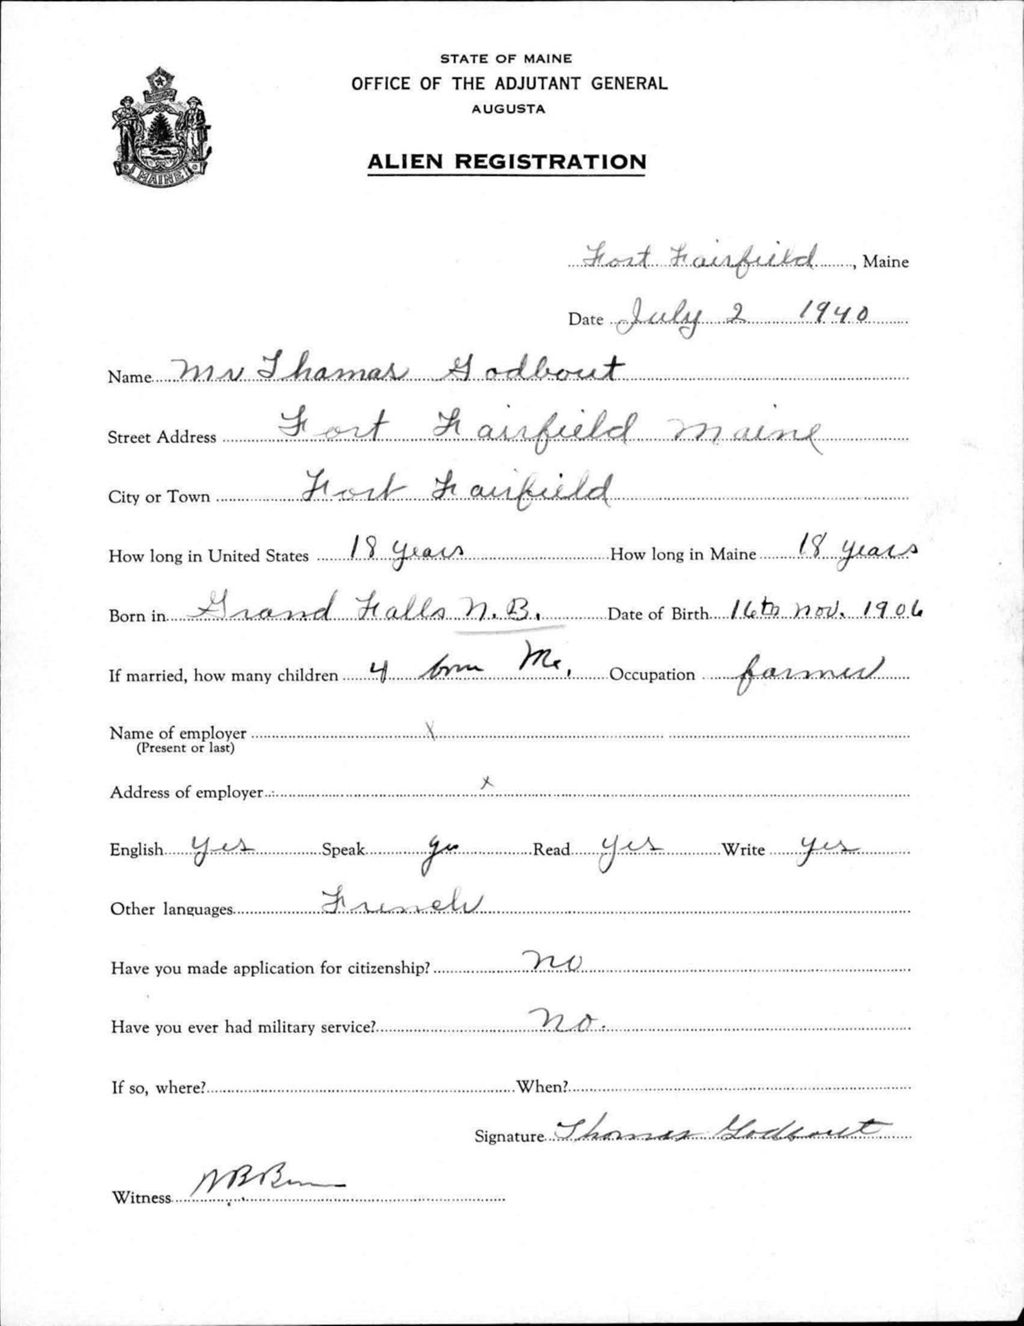 STATE OF MAINE
OFFICE OF THE ADJUTANT GENERAL
AUGUSTA
ALIEN REGISTRATION
MAINE
Fort Fairfield, Maine
Date July 2 1940
Name Mr Thomas Godbout
Street Address Fort Fairfield Maine
City or Town Fort Fairfield
How long in United States 18 years How long in Maine 18 years
Born in Grand Falls N.B. Date of Birth 16th Nov. 1906
If married, how many children 4 born Me. Occupation farmer
Name of employer x
(Present or last)
Address of employer x
English Yes Speak yes Read yes Write yes
Other languages French
Have you made application for citizenship? No
Have you ever had military service? No.
If so, where? When?
Signature Thomas Godbout
Witness